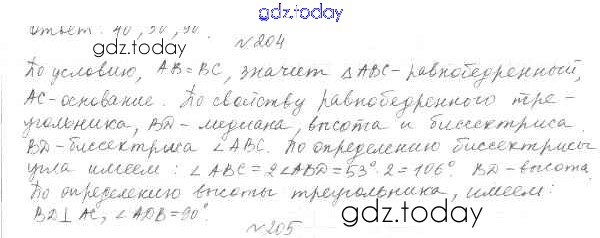 gdz.today
Ответ: 40, 50, 90.
gdz.today
№204
По условию, AB=BC, значит △ABC-равнобедренный,
AC-основание. По свойству равнобедренного тре-
угольника, BD-медиана, высота и биссектриса.
BD-биссектриса ∠ABC. По определению биссектрисы
угла имеем: ∠ABC=2∠ABD=53°·2=106°. BD-высота.
По определению высоты треугольника, имеем:
BD⊥AC, ∠ADB=90°.
gdz.today
№205
gdz.today